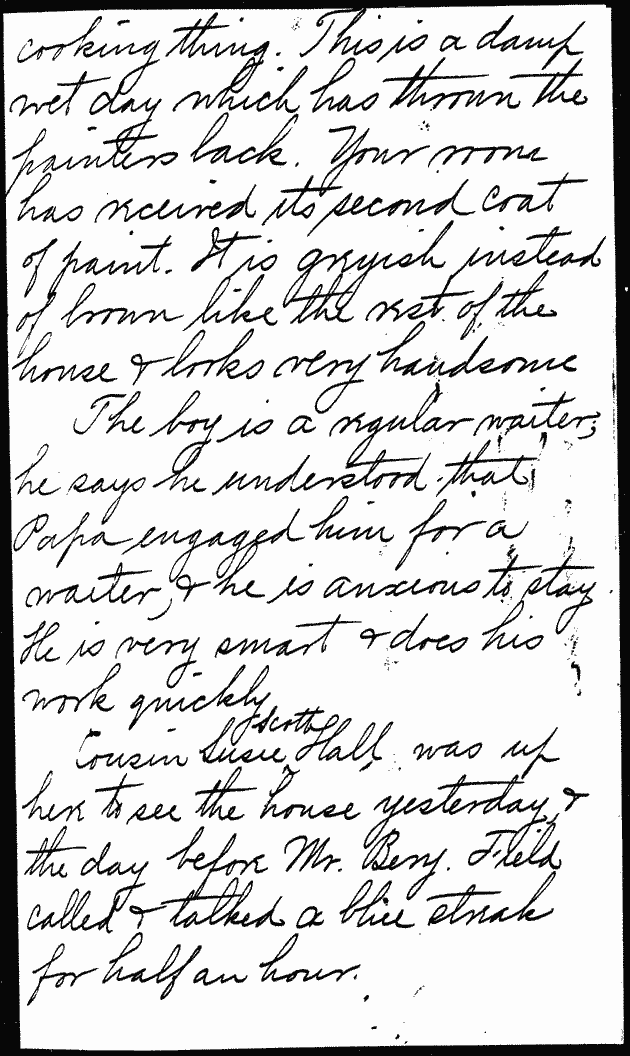 cooking thing. This is a damp
wet day which has thrown the
painters back. Your room
has received its second coat
of paint. It is greyish instead
of brown like the rest of the
house & looks very handsome
The boy is a regular waiter;
he says he understood that
Papa engaged him for a
waiter, & he is anxious to stay.
He is very smart & does his
work quickly
Scott
Cousin Susie Hall, was up
here to see the house yesterday, &
the day before Mr. Benj. Field
called & talked a blue streak
for half an hour.